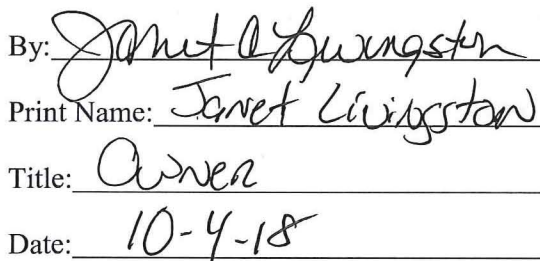 By: Janet A Livingston
Print Name: Janet Livingston
Title: Owner
Date: 10-4-18